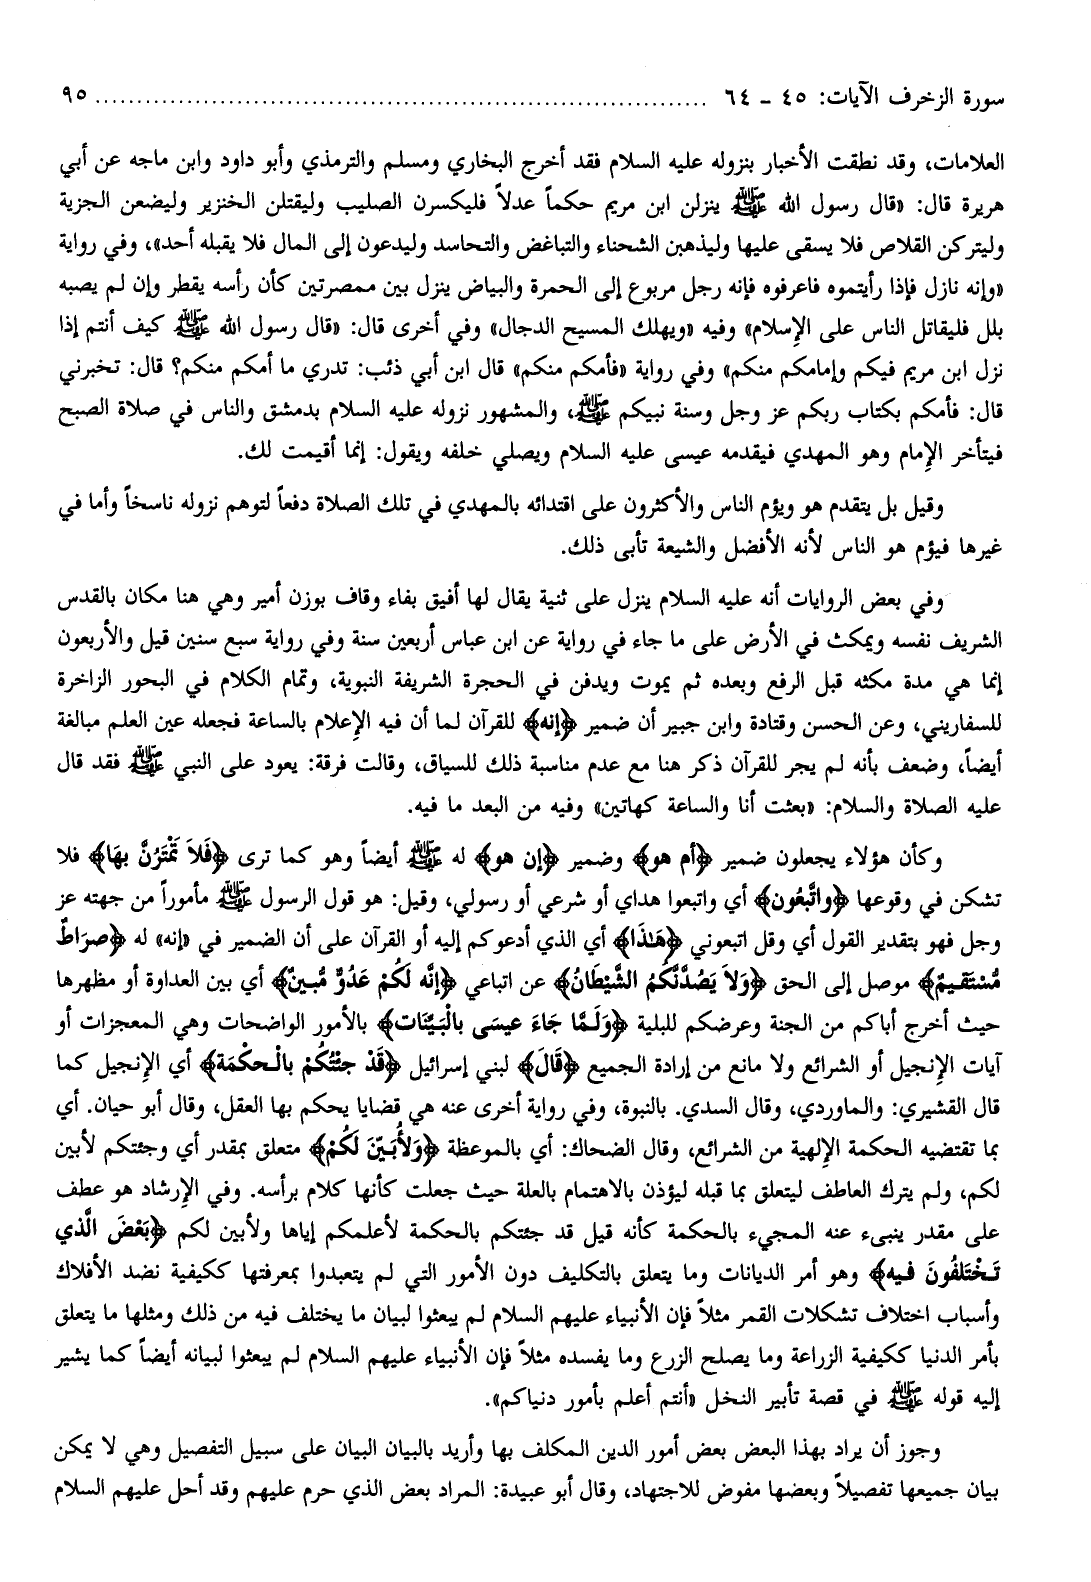 سورة الزخرف الآيات: ٤٥ - ٦٤ ........................................................................ ٩٥
العلامات، وقد نطقت الأخبار بنزوله عليه السلام فقد أخرج البخاري ومسلم والترمذي وأبو داود وابن ماجه عن أبي
هريرة قال: «قال رسول الله ﷺ ينزلن ابن مريم حكماً عدلاً فليكسرن الصليب وليقتلن الخنزير وليضعن الجزية
وليتركن القلاص فلا يسقى عليها وليذهبن الشحناء والتباغض والتحاسد وليدعون إلى المال فلا يقبله أحد»، وفي رواية
«وإنه نازل فإذا رأيتموه فاعرفوه فإنه رجل مربوع إلى الحمرة والبياض ينزل بين ممصرتين كأن رأسه يقطر وإن لم يصبه
بلل فليقاتل الناس على الإسلام» وفيه «ويهلك المسيح الدجال» وفي أخرى قال: «قال رسول الله ﷺ كيف أنتم إذا
نزل ابن مريم فيكم وإمامكم منكم» وفي رواية «فأمكم منكم» قال ابن أبي ذئب: تدري ما أمكم منكم؟ قال: تخبرني
قال: فأمكم بكتاب ربكم عز وجل وسنة نبيكم ﷺ، والمشهور نزوله عليه السلام بدمشق والناس في صلاة الصبح
فيتأخر الإمام وهو المهدي فيقدمه عيسى عليه السلام ويصلي خلفه ويقول: إنما أقيمت لك.
وقيل بل يتقدم هو ويؤم الناس والأكثرون على اقتدائه بالمهدي في تلك الصلاة دفعاً لتوهم نزوله ناسخاً وأما في
غيرها فيؤم هو الناس لأنه الأفضل والشيعة تأبى ذلك.
وفي بعض الروايات أنه عليه السلام ينزل على ثنية يقال لها أفيق بفاء وقاف بوزن أمير وهي هنا مكان بالقدس
الشريف نفسه ويمكث في الأرض على ما جاء في رواية عن ابن عباس أربعين سنة وفي رواية سبع سنين قيل والأربعون
إنما هي مدة مكثه قبل الرفع وبعده ثم يموت ويدفن في الحجرة الشريفة النبوية، وتمام الكلام في البحور الزاخرة
للسفاريني، وعن الحسن وقتادة وابن جبير أن ضمير ﴿إنه﴾ للقرآن لما أن فيه الإعلام بالساعة فجعله عين العلم مبالغة
أيضاً، وضعف بأنه لم يجر للقرآن ذكر هنا مع عدم مناسبة ذلك للسياق، وقالت فرقة: يعود على النبي ﷺ فقد قال
عليه الصلاة والسلام: «بعثت أنا والساعة كهاتين» وفيه من البعد ما فيه.
وكأن هؤلاء يجعلون ضمير ﴿أم هو﴾ وضمير ﴿إن هو﴾ له ﷺ أيضاً وهو كما ترى ﴿فَلاَ تَمْتَرُنَّ بِهَا﴾ فلا
تشكن في وقوعها ﴿واتَّبعُون﴾ أي واتبعوا هداي أو شرعي أو رسولي، وقيل: هو قول الرسول ﷺ مأموراً من جهته عز
وجل فهو بتقدير القول أي وقل اتبعوني ﴿هَـٰذَا﴾ أي الذي أدعوكم إليه أو القرآن على أن الضمير في «إنه» له ﴿صرَاطٌ
مُّسْتَقيمٌ﴾ موصل إلى الحق ﴿وَلاَ يَصُدَّنَّكُمُ الشَّيْطَانُ﴾ عن اتباعي ﴿إنَّه لَكُمْ عَدُوٌّ مُّبينٌ﴾ أي بين العداوة أو مظهرها
حيث أخرج أباكم من الجنة وعرضكم للبلية ﴿وَلَـمَّا جَاءَ عيسَى بالْبَيِّنَات﴾ بالأمور الواضحات وهي المعجزات أو
آيات الإنجيل أو الشرائع ولا مانع من إرادة الجميع ﴿قَالَ﴾ لبني إسرائيل ﴿قَدْ جئْتُكُمْ بالْـحكْمَة﴾ أي الإنجيل كما
قال القشيري: والماوردي، وقال السدي. بالنبوة، وفي رواية أخرى عنه هي قضايا يحكم بها العقل، وقال أبو حيان. أي
بما تقتضيه الحكمة الإلهية من الشرائع، وقال الضحاك: أي بالموعظة ﴿وَلأُبَيِّنَ لَكُمْ﴾ متعلق بمقدر أي وجئتكم لأبين
لكم، ولم يترك العاطف ليتعلق بما قبله ليؤذن بالاهتمام بالعلة حيث جعلت كأنها كلام برأسه. وفي الإرشاد هو عطف
على مقدر ينبىء عنه المجيء بالحكمة كأنه قيل قد جئتكم بالحكمة لأعلمكم إياها ولأبين لكم ﴿بَعْضَ الَّذي
تَـخْتَلفُونَ فيه﴾ وهو أمر الديانات وما يتعلق بالتكليف دون الأمور التي لم يتعبدوا بمعرفتها ككيفية نضد الأفلاك
وأسباب اختلاف تشكلات القمر مثلاً فإن الأنبياء عليهم السلام لم يبعثوا لبيان ما يختلف فيه من ذلك ومثلها ما يتعلق
بأمر الدنيا ككيفية الزراعة وما يصلح الزرع وما يفسده مثلاً فإن الأنبياء عليهم السلام لم يبعثوا لبيانه أيضاً كما يشير
إليه قوله ﷺ في قصة تأبير النخل «أنتم أعلم بأمور دنياكم».
وجوز أن يراد بهذا البعض بعض أمور الدين المكلف بها وأريد بالبيان البيان على سبيل التفصيل وهي لا يمكن
بيان جميعها تفصيلاً وبعضها مفوض للاجتهاد، وقال أبو عبيدة: المراد بعض الذي حرم عليهم وقد أحل عليهم السلام